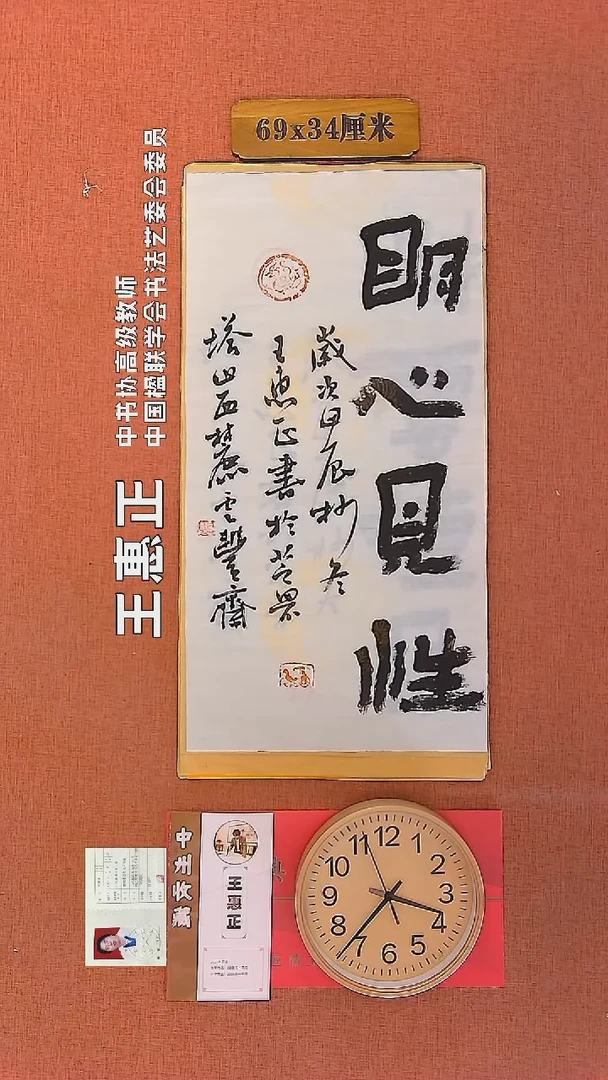 69x34厘米
明心見性
歲次甲辰秒冬
王惠正書於芒碭
塔山西麓雲豐齋
中书协高级教师
中国楹联学会书法艺委会委员
王惠正
中州收藏
王惠正
12
1
2
3
4
5
6
7
8
9
10
11